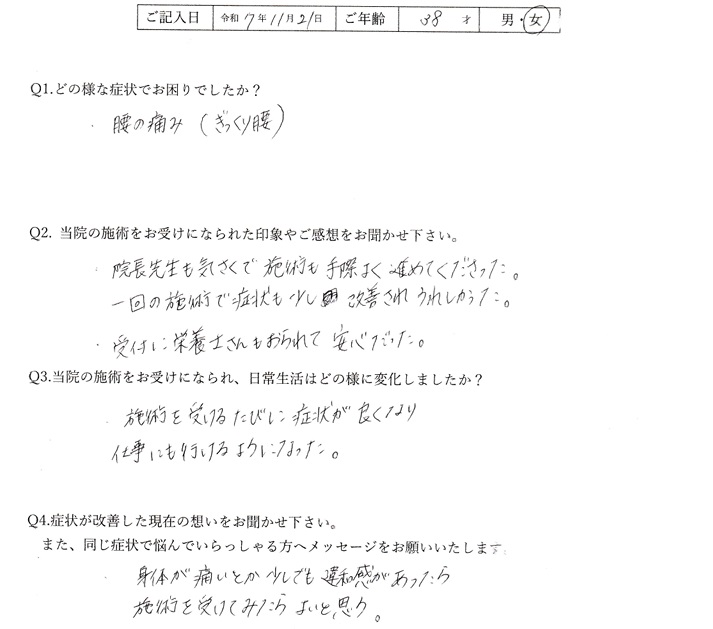 ご記入日 令和 7年11月21日 ご年齢 38 才 男・女
Q1.どの様な症状でお困りでしたか？
・腰の痛み（ぎっくり腰）
Q2. 当院の施術をお受けになられた印象やご感想をお聞かせ下さい。
・院長先生も気さくで施術も手際よく進めてくださった。
一回の施術で症状も少し改善されうれしかった。
・受付に栄養士さんもおられて安心だった。
Q3.当院の施術をお受けになられ、日常生活はどの様に変化しましたか？
・施術を受けるたびに症状が良くなり
仕事にも行けるようになった。
Q4.症状が改善した現在の想いをお聞かせ下さい。
また、同じ症状で悩んでいらっしゃる方へメッセージをお願いいたします
・身体が痛いとか少しでも違和感があったら
施術を受けてみたらよいと思う。